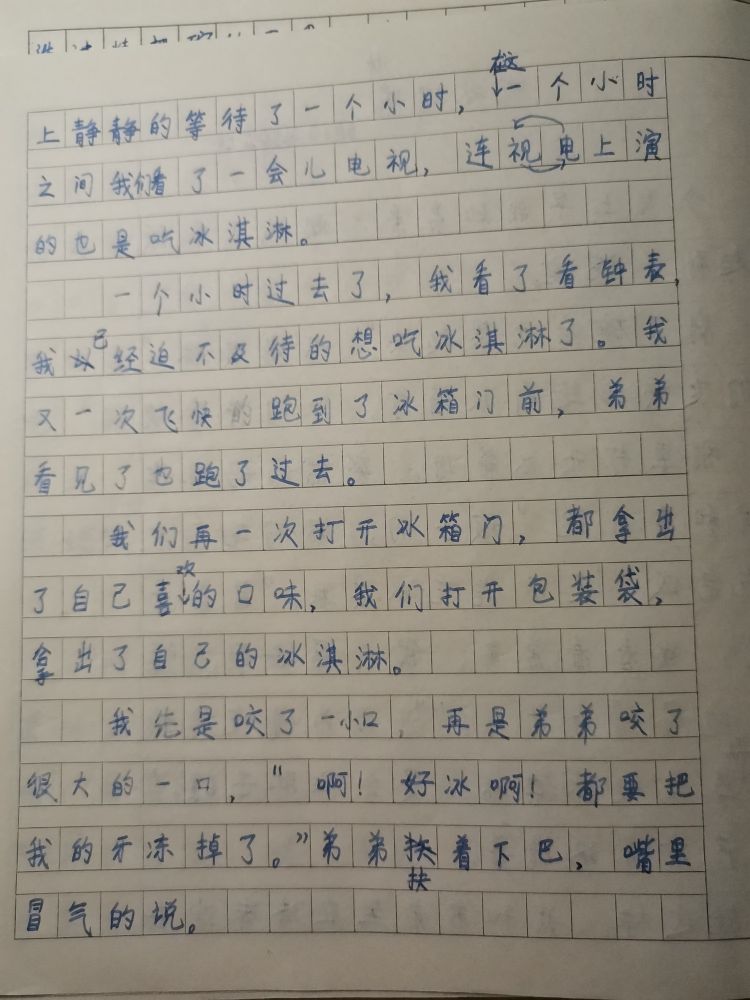 上静静的等待了一个小时，在这一个小时
之间我们看了一会儿电视，连视电上演
的也是吃冰淇淋。
一个小时过去了，我看了看钟表，
我已经迫不及待的想吃冰淇淋了。我
又一次飞快的跑到了冰箱门前，弟弟
看见了也跑了过去。
我们再一次打开冰箱门，都拿出
了自己喜欢的口味，我们打开包装袋，
拿出了自己的冰淇淋。
我先是咬了一小口，再是弟弟咬了
很大的一口，“啊！好冰啊！都要把
我的牙冻掉了。”弟弟扶着下巴，嘴里
冒气的说。